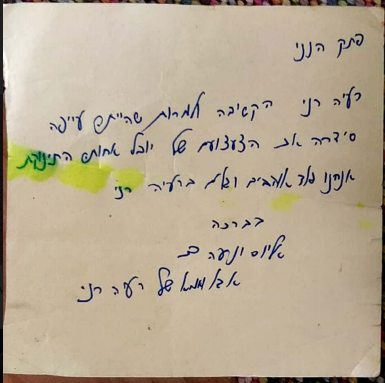 פתק הנני
רעיה רני הקשיבה למרות שהייתה עייפה
סידרה את הצעצועים של יובל אחותה התינוקת
אנחנו מאד אוהבים וגאים ברעיה רני
בברכה
ונועה
אבא ואמא של רעיה רני